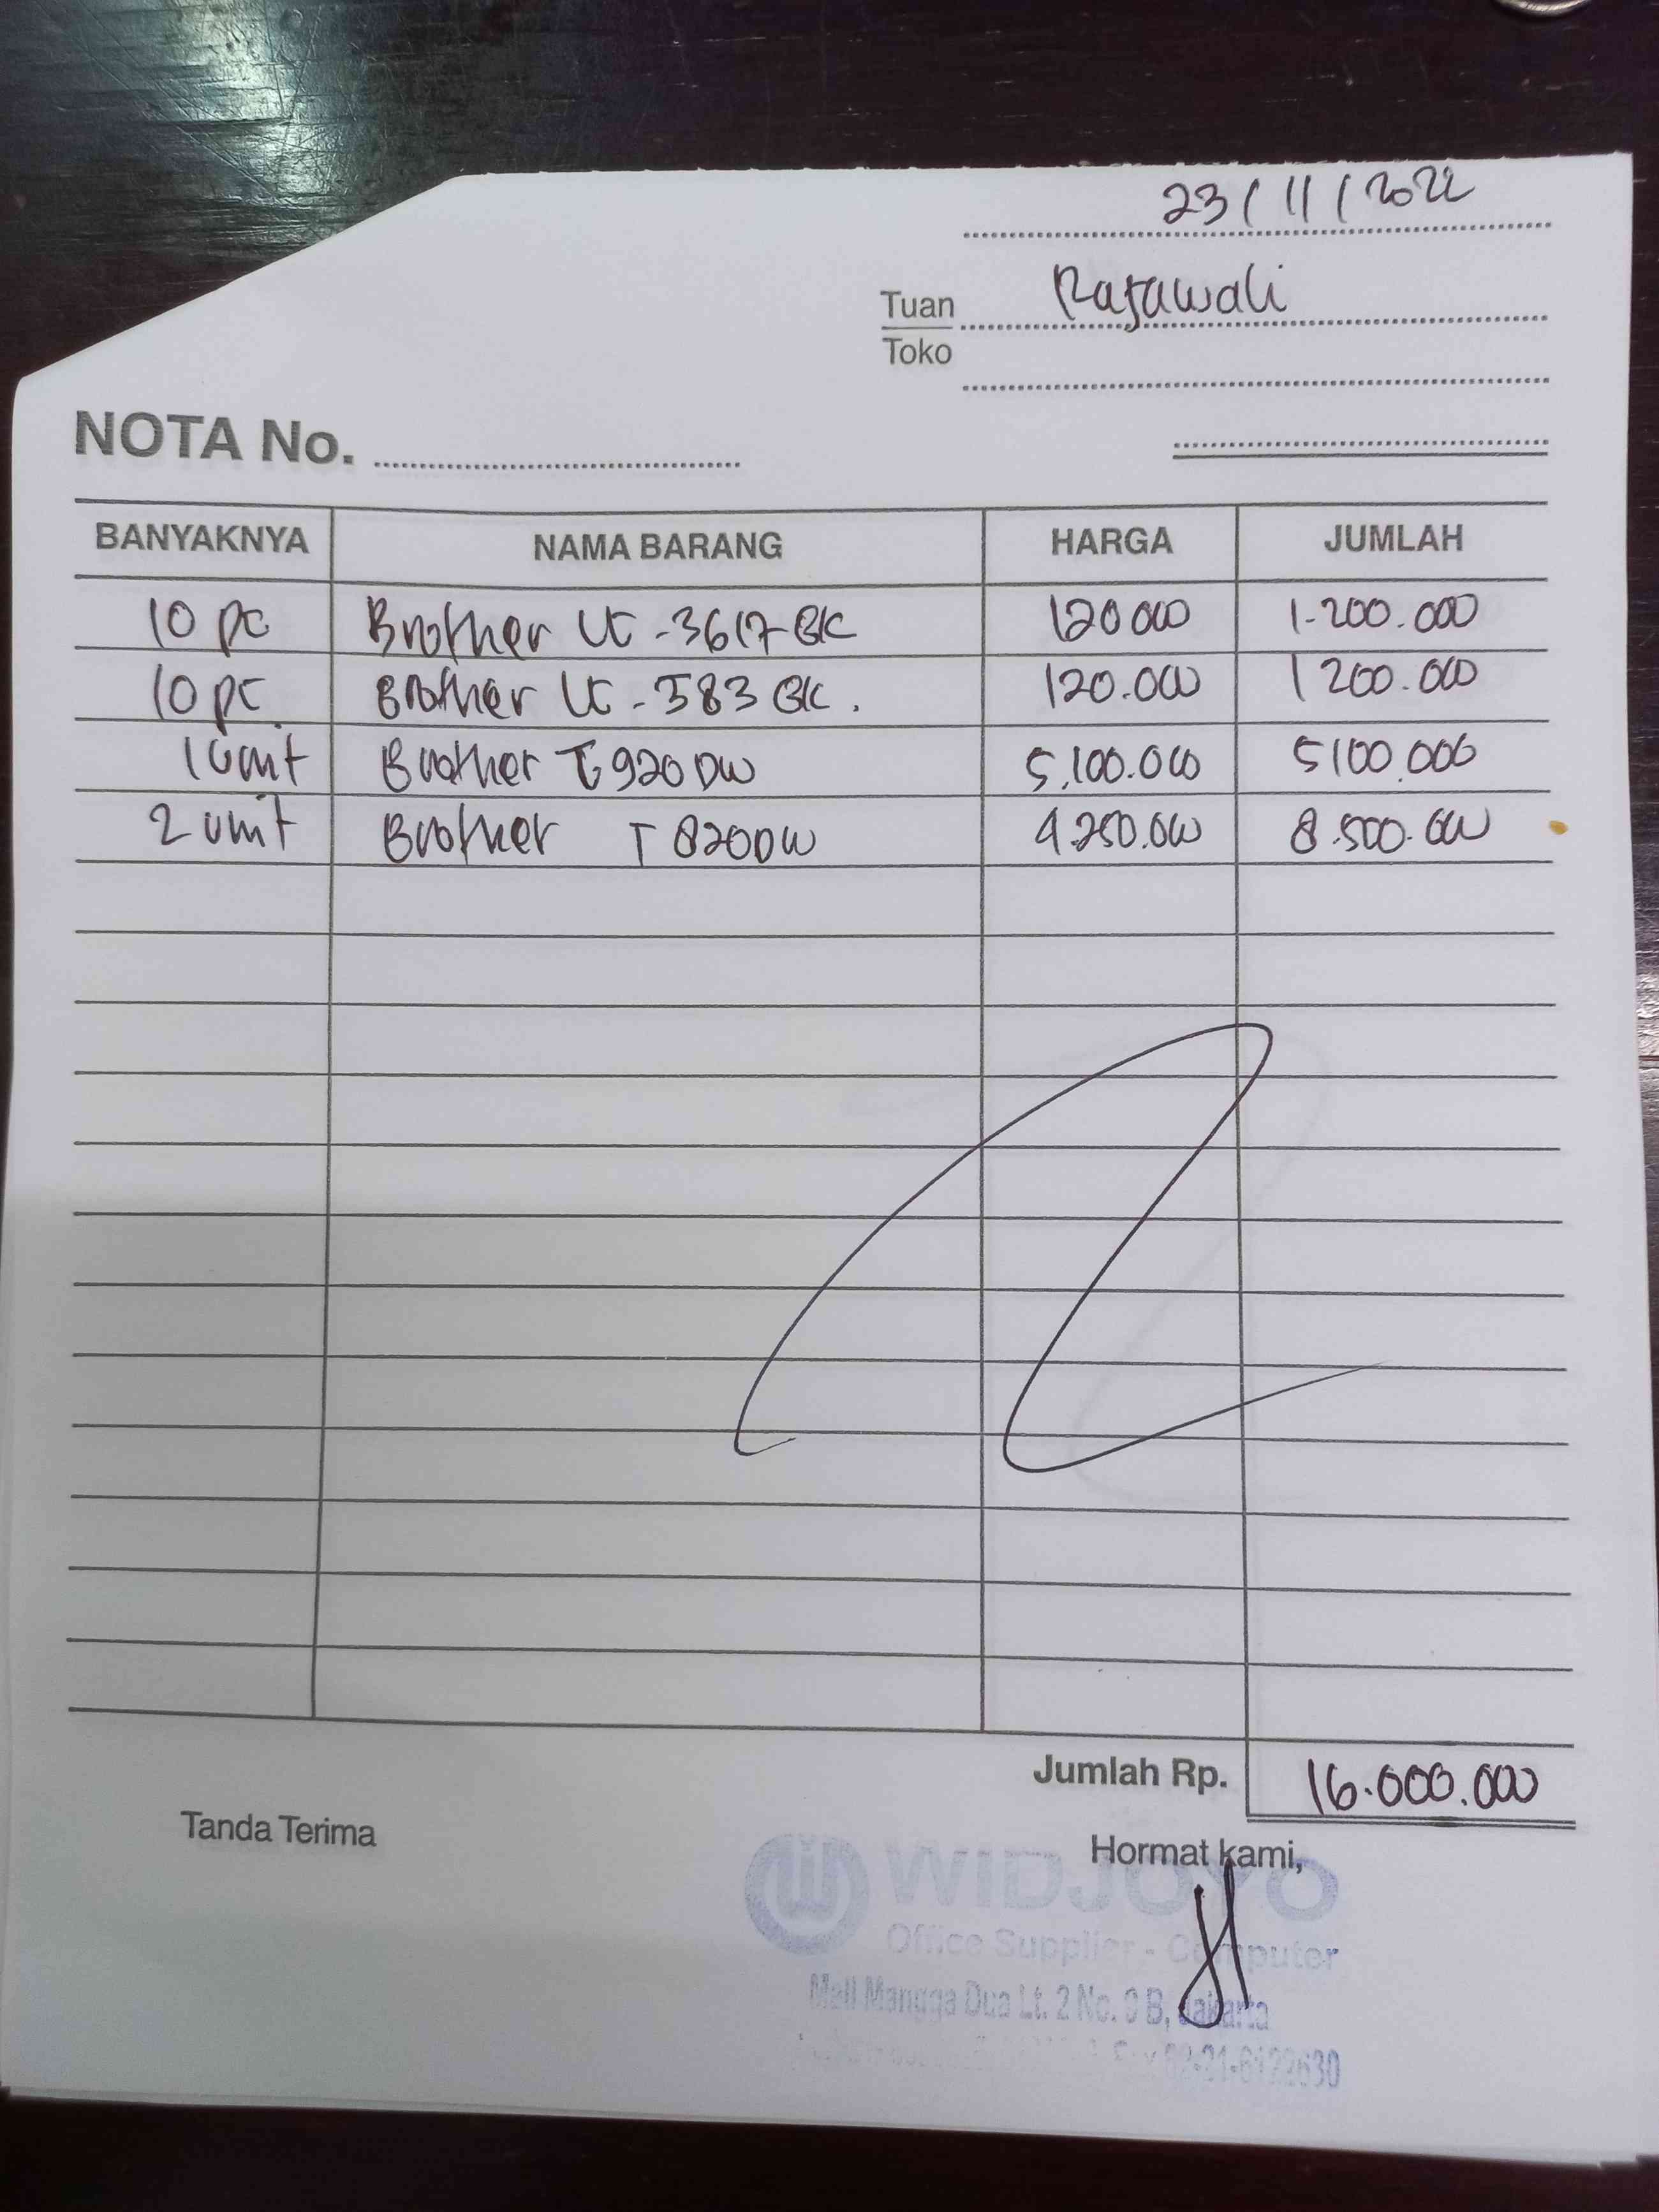 23/11/2022
Tuan Rajawali
Toko
NOTA No.
BANYAKNYA NAMA BARANG HARGA JUMLAH
10 pc Brother LC-3617 BK 120 000 1.200.000
10 pc Brother LC-583 BK. 120.000 1 200.000
1 unit Brother T 920 DW 5.100.000 5100.000
2 unit Brother T 820DW 4.250.000 8.500.000
Jumlah Rp. 16.000.000
Tanda Terima
Hormat kami,
WIDJOYO
Office Supplier - Computer
Mall Mangga Dua Lt. 2 No. B, Jakarta